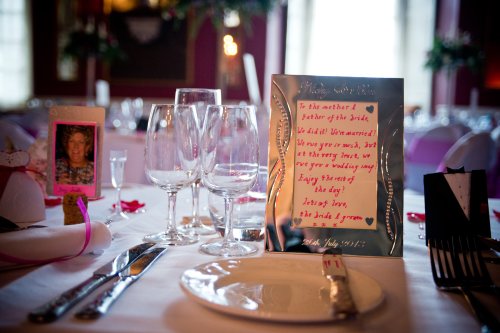 To the mother and
father of the bride,
We did it! We're married!
We owe you so much, but
at the very least, we
owe you a wedding song
Enjoy the rest of
the day!
Lots of love,
the bride & groom
July